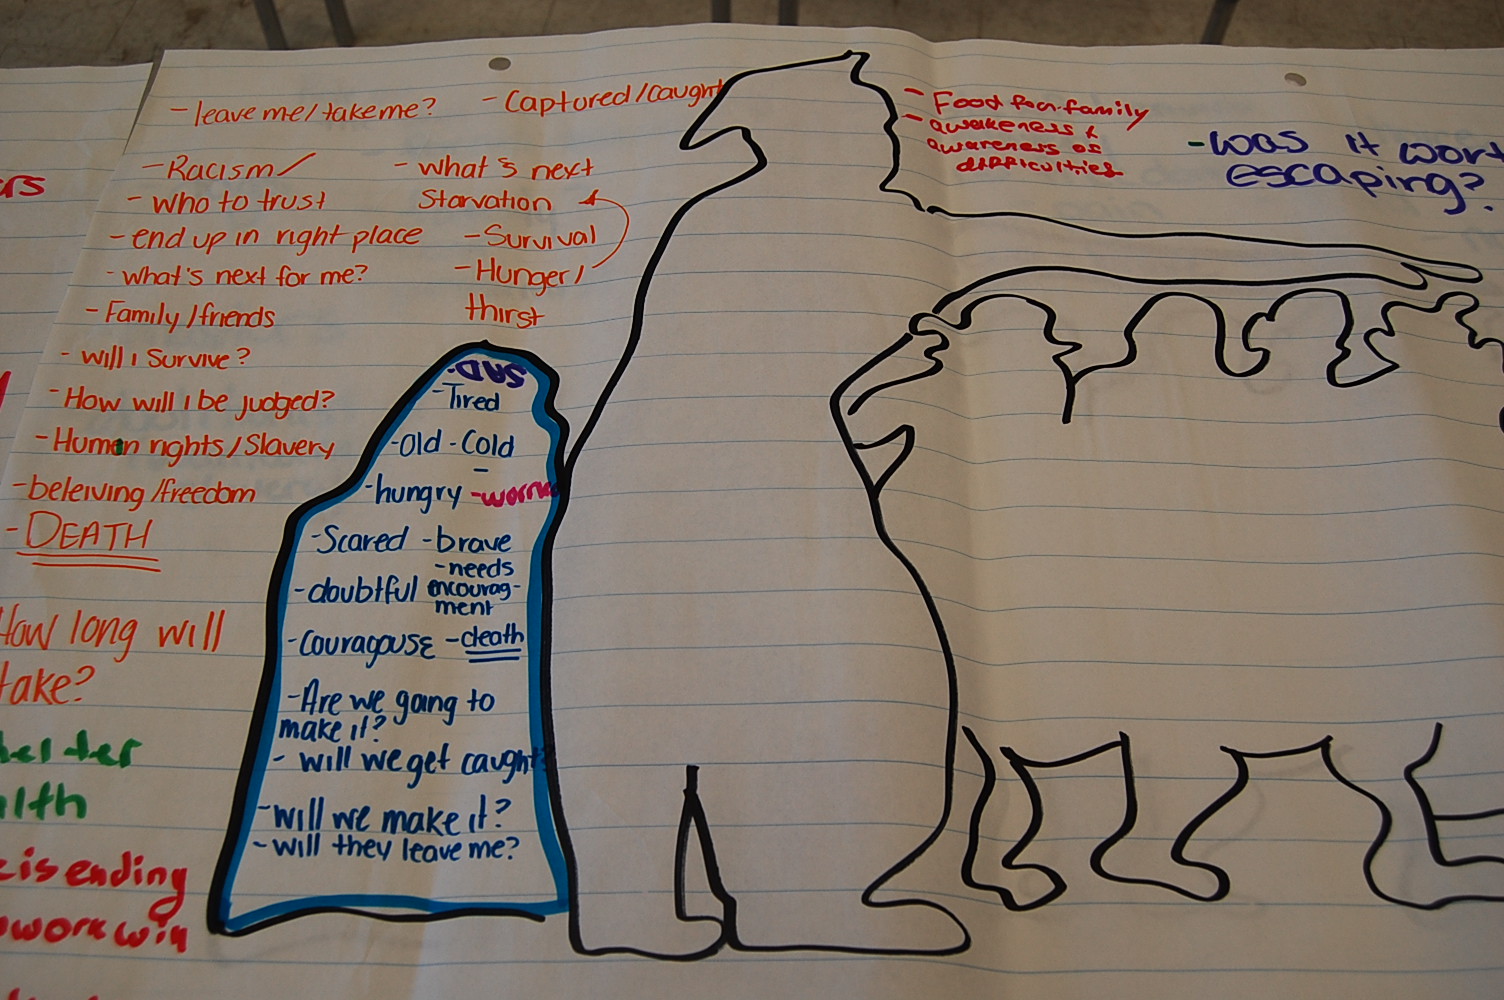 - leave me / take me?
- Captured / caught
- Racism /
- who to trust
- end up in right place
- what's next for me?
- Family / friends
- will I survive?
- How will I be judged?
- Human rights / Slavery
- beleiving / freedom
- DEATH
- what's next
Starvation
- Survival
- Hunger /
thirst
- Food for family
- awakeness &
awareness of
difficulties
- was it wort
escaping?
SAD
- Tired
- old - Cold
- hungry - worri
- Scared - brave
- needs
encourag-
ment
- doubtful
- couragouse - death
- Are we going to
make it?
- will we get caught?
- will we make it?
- will they leave me?
How long will
take?
is ending
work win